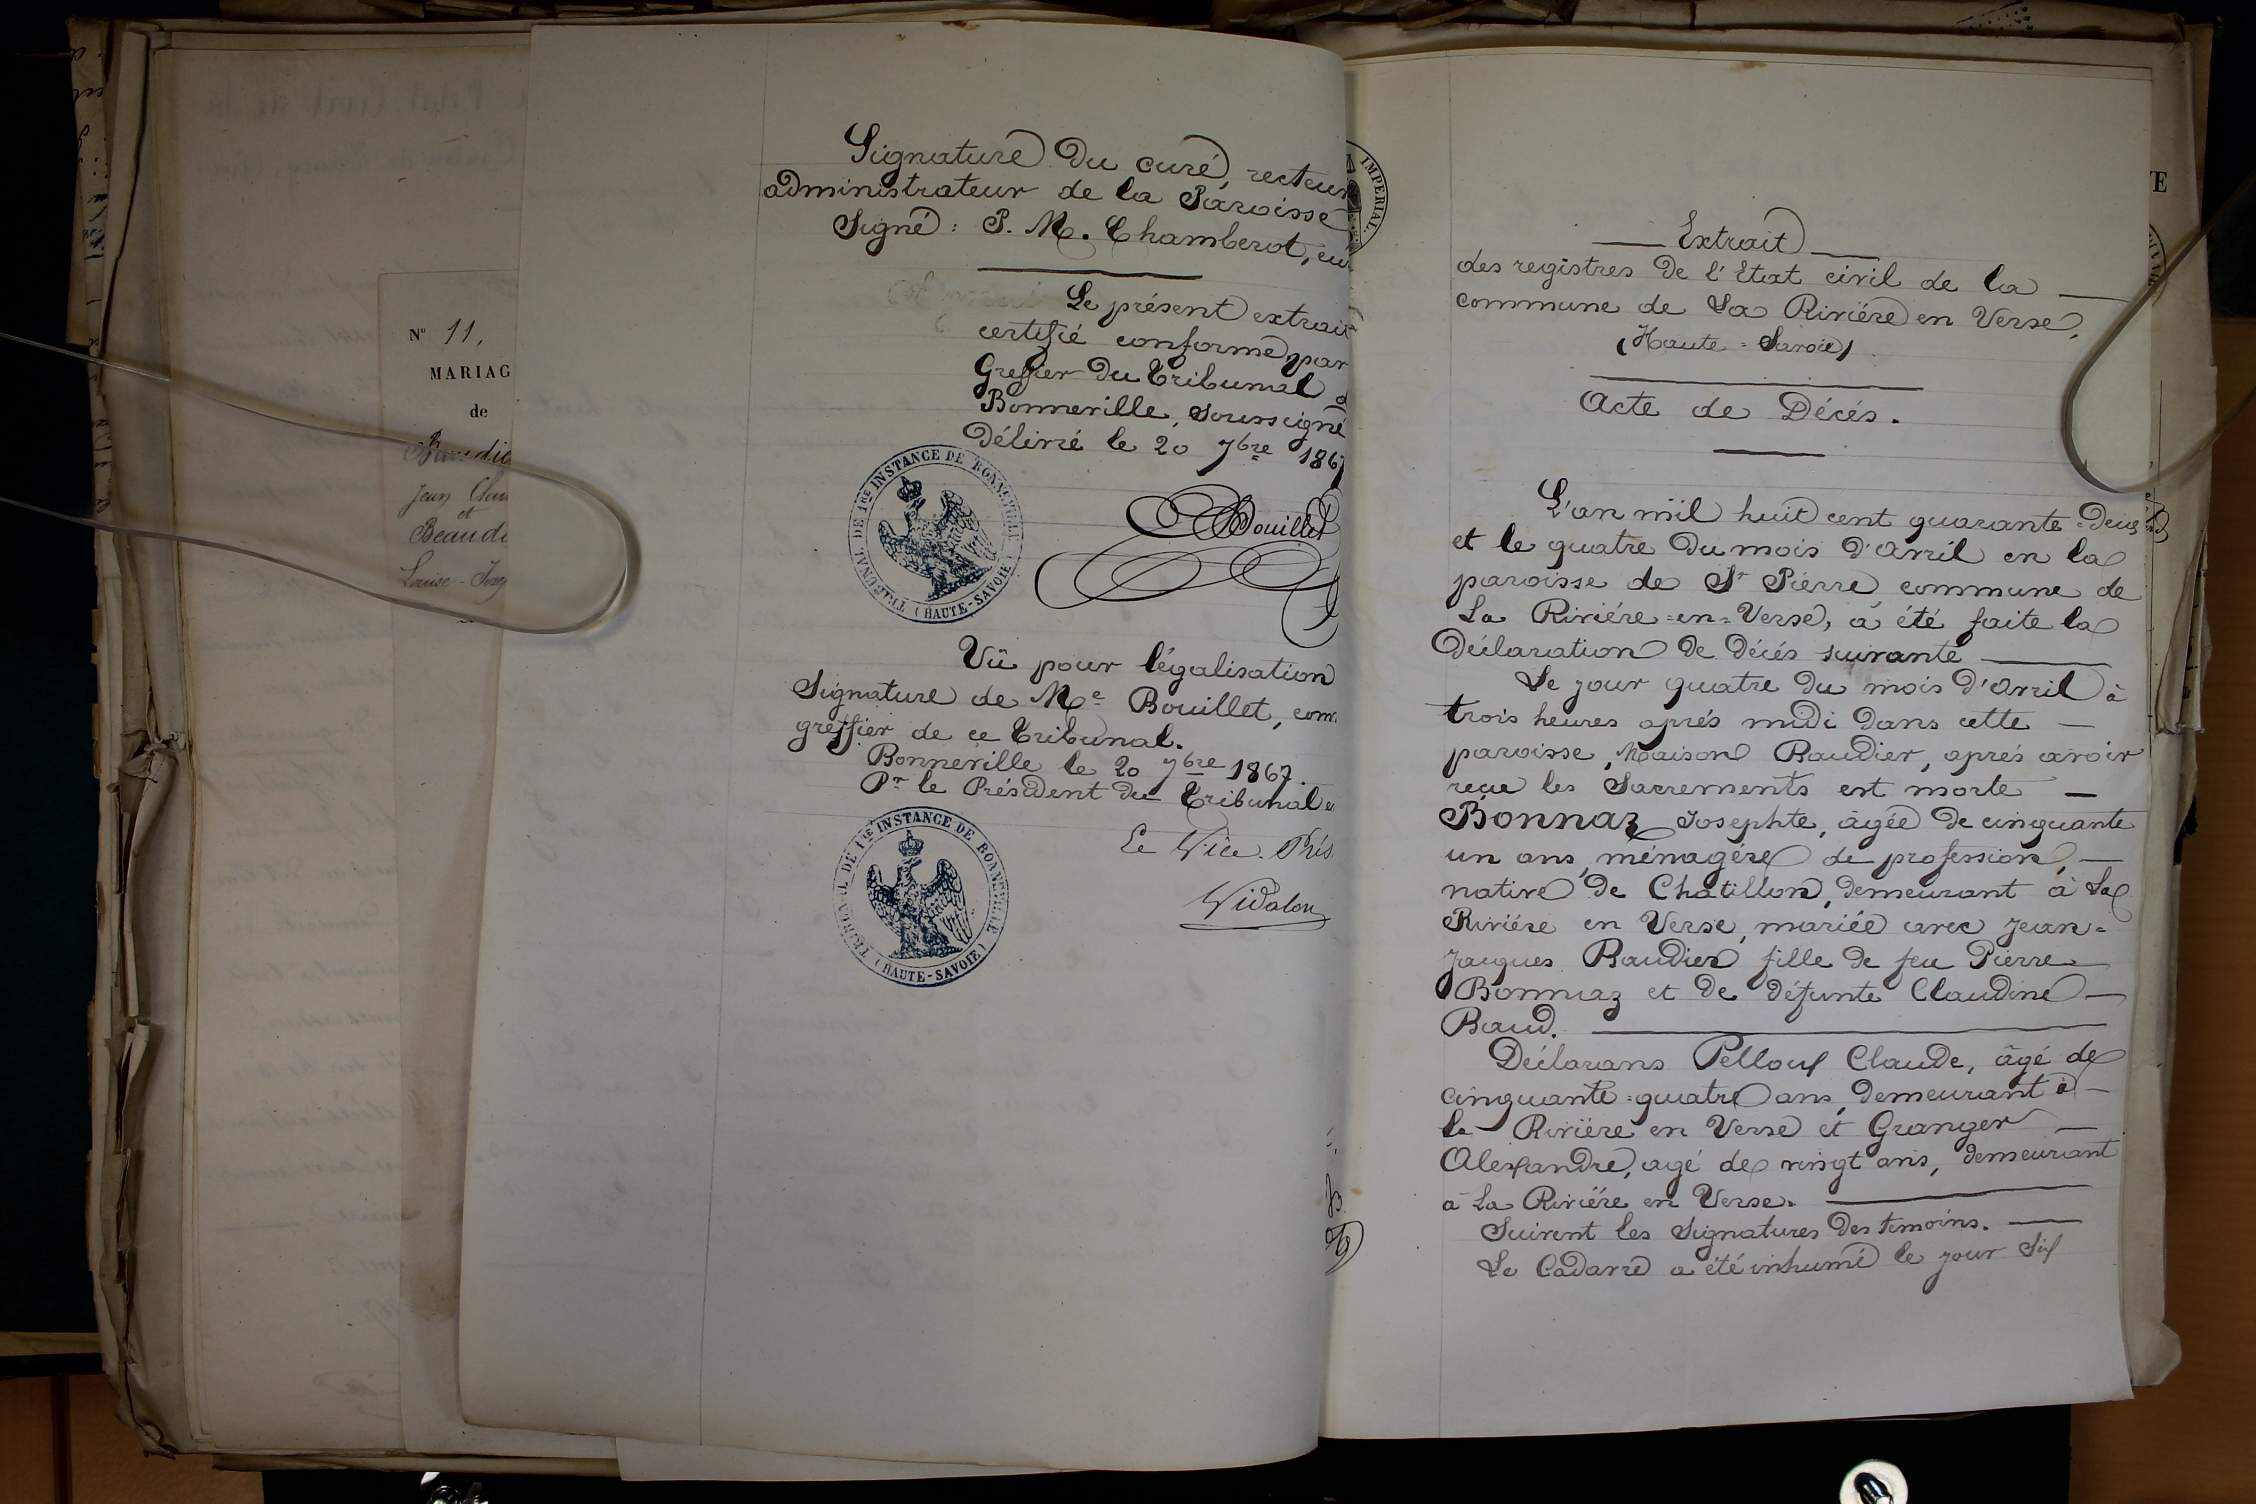 Nº 11,
MARIAG
de
Jean Clau
et
Beaudi
Louise-
Signature du curé, recteur
administrateur de la Paroisse
Signé : P. M. Chamberot, cu
Le présent extrait
certifié conforme par
Greffier du Tribunal d
Bonneville, soussigné
Délivré le 20 7bre 1867
TRIBUNAL DE 1re INSTANCE DE BONNEVILLE (HAUTE-SAVOIE)
Bouillet
Vû pour légalisation
Signature de Me Bouillet, com
greffier de ce Tribunal.
Bonneville le 20 7bre 1867.
Pr le Président du Tribunal e
TRIBUNAL DE 1re INSTANCE DE BONNEVILLE (HAUTE-SAVOIE)
Le Vice-Prés
Vidalon
IMPERIAL.
Extrait
des registres de l'Etat civil de la
commune de La Riviére en Verse,
(Haute-Savoie)
Acte de Décés.
L'an mil huit cent quarante-deux
et le quatre du mois d'avril en la
paroisse de St Pierre, commune de
La Riviére-en-Verse, a été faite la
Déclaration de Décés suivante
Le jour quatre du mois d'avril à
trois heures aprés midi dans cette
paroisse, Maison Baudier, aprés avoir
reçue les Sacrements est morte
Bonnaz Josephte, âgée de cinquante
un ans, ménagére de profession,
native de Chatillon, demeurant à La
Riviére en Verse, mariée avec Jean-
Jacques Baudier fille de feu Pierre
Bonnaz et de défunte Claudine
Baud.
Déclarans Pelloux Claude, âgé de
cinquante-quatre ans, demeurant à
la Riviére en Verse et Granger
Alexandre, agé de vingt ans, demeurant
à La Riviére en Verse.
Suivent les Signatures des temoins.
Le Cadavre a été inhumé le jour Six